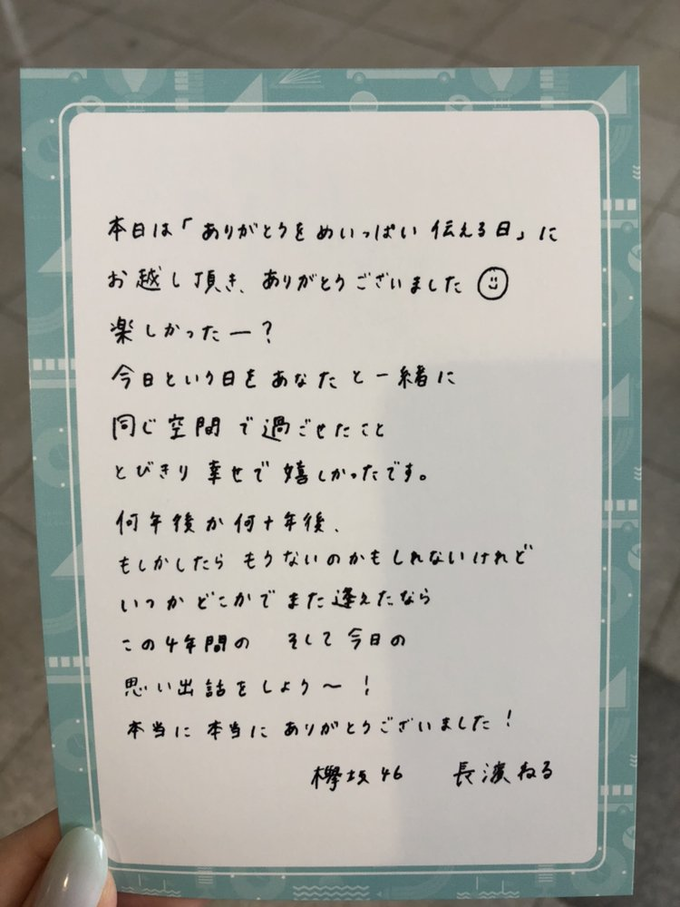 本日は「ありがとうをめいっぱい伝える日」に
お越し頂き、ありがとうございました
楽しかったー?
今日という日をあなたと一緒に
同じ空間で過ごせたこと
とびきり幸せで嬉しかったです。
何年後か何十年後、
もしかしたらもうないのかもしれないけれど
いつかどこかでまた逢えたなら
この4年間の そして今日の
思い出話をしよう〜!
本当に本当にありがとうございました!
欅坂46 長濱ねる